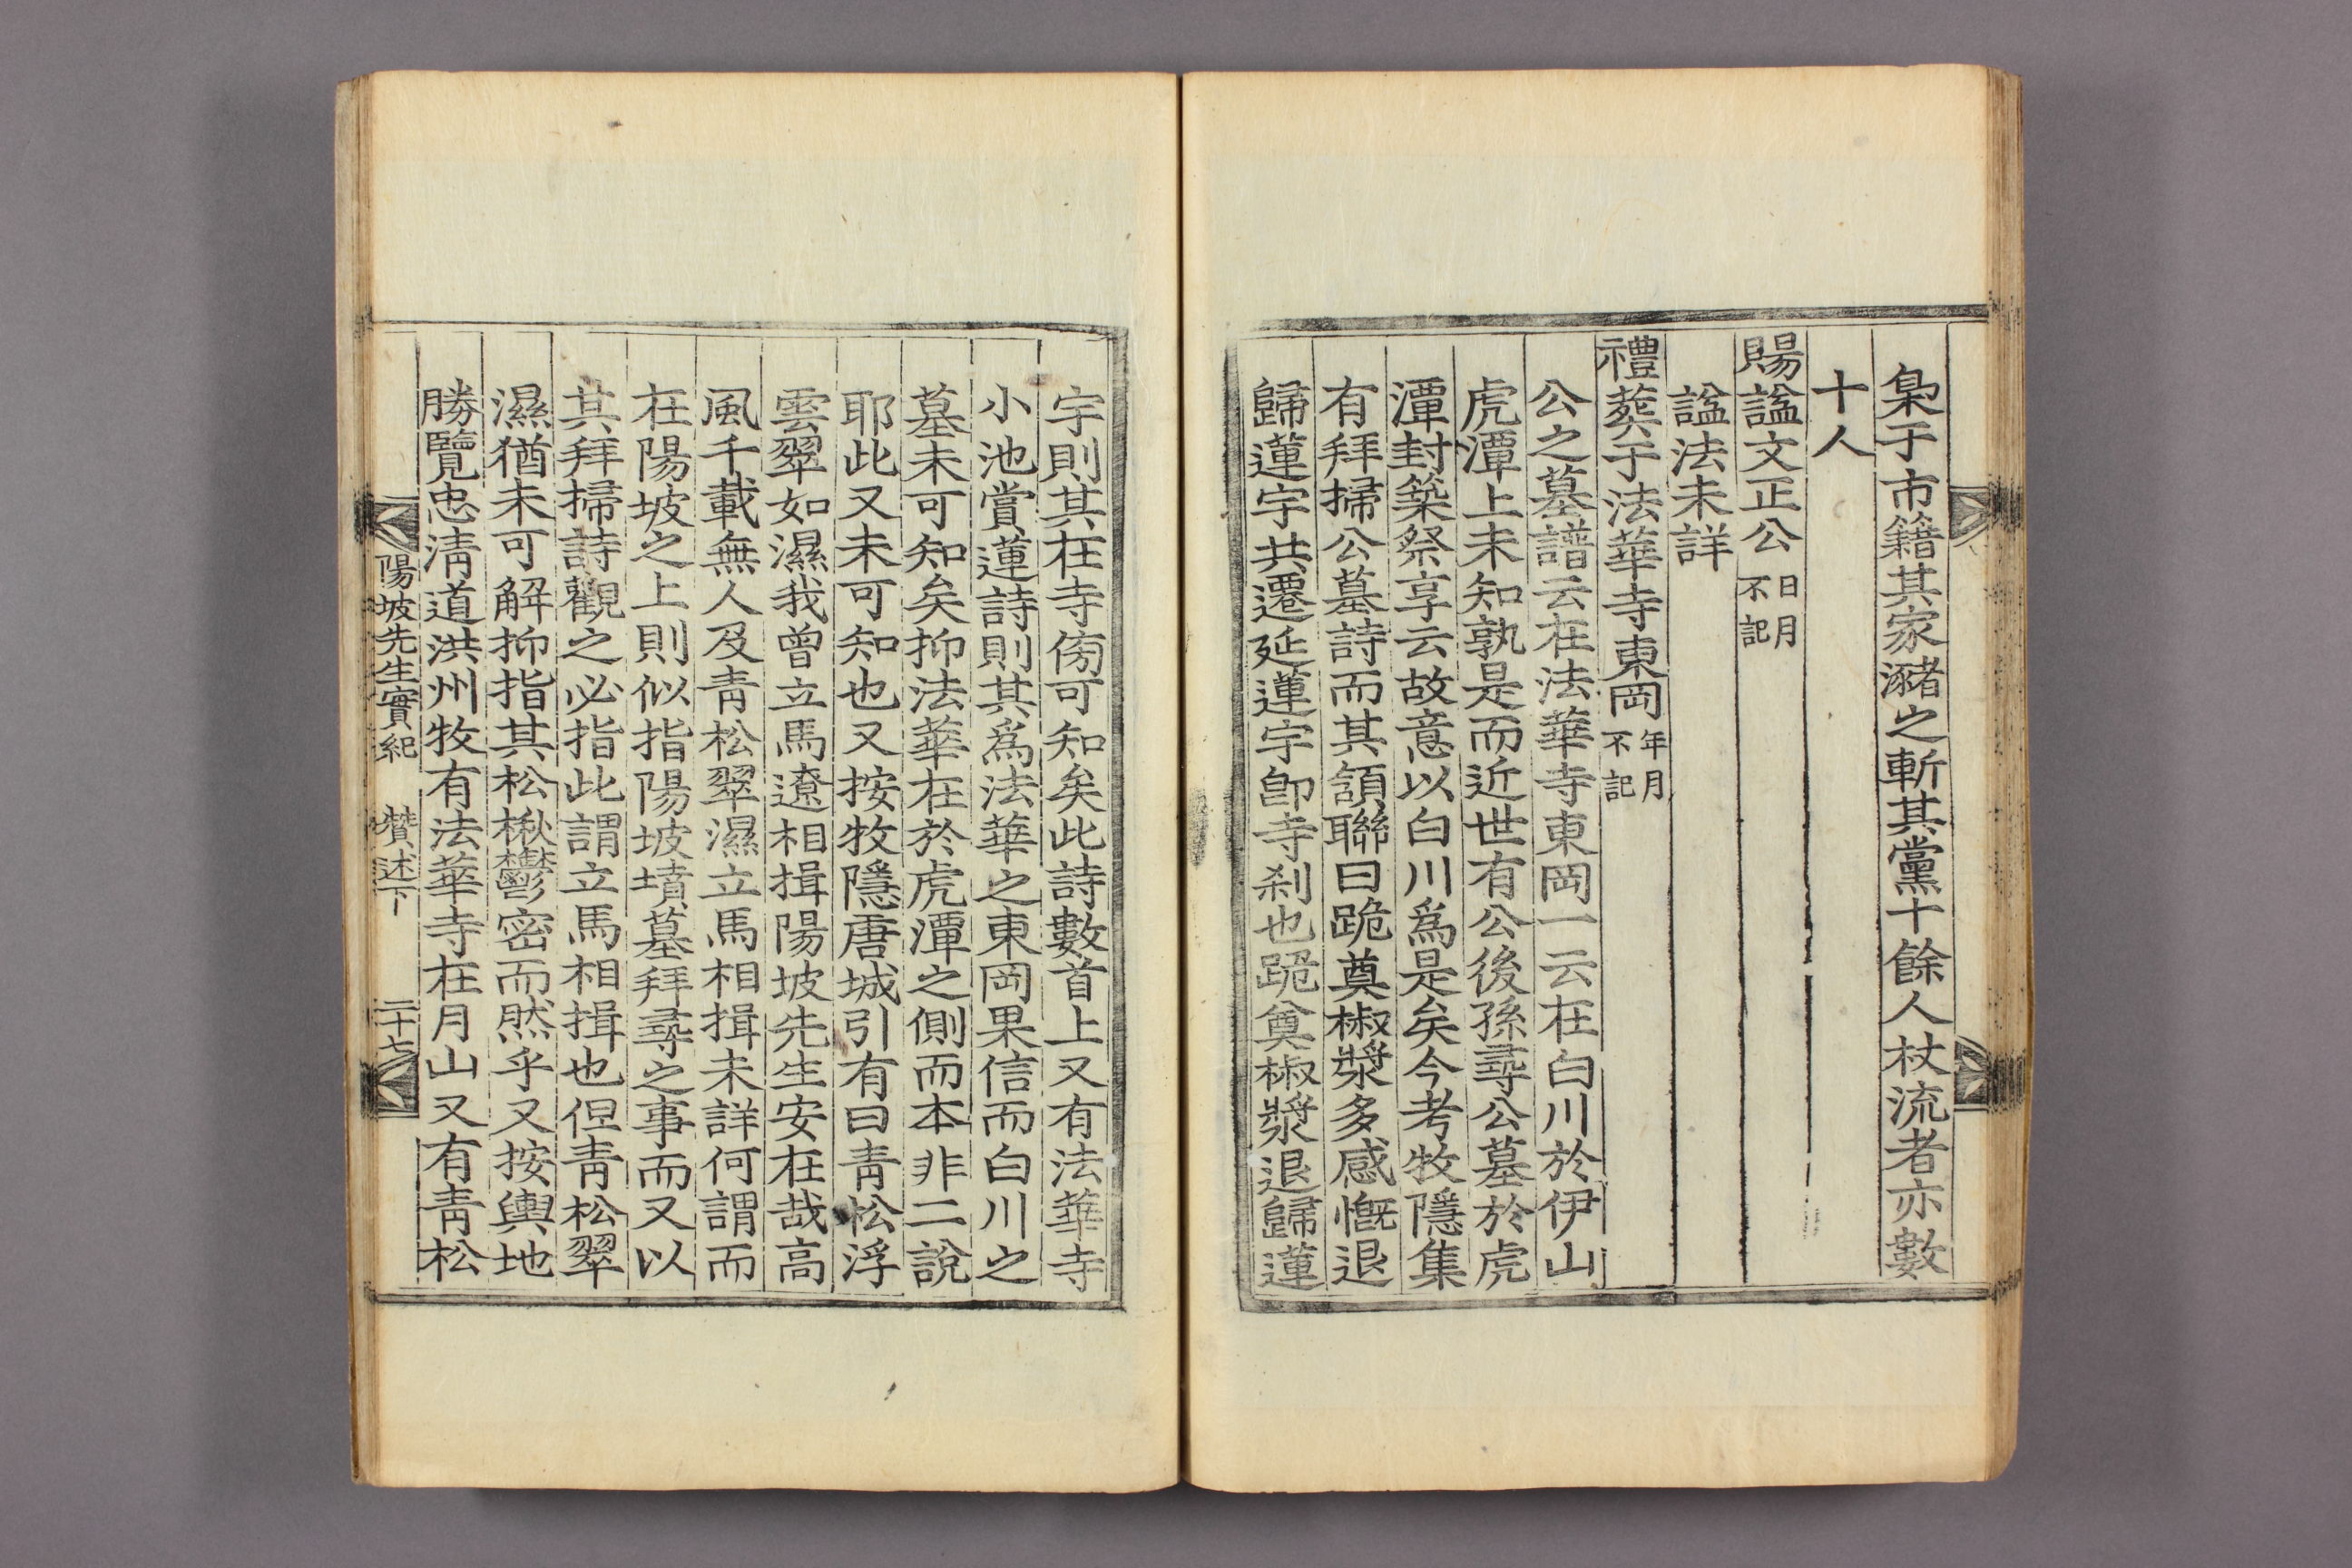 梟于市籍其家瀦之斬其黨十餘人杖流者亦數
十人
賜諡文正公日月不記
諡法未詳
禮葬于法華寺東岡年月不記
公之墓譜云在法華寺東岡一云在白川於伊山
虎潭上未知孰是而近世有公後孫尋公墓於虎
潭封築祭享云故意以白川爲是矣今考牧隱集
有拜掃公墓詩而其頷聯曰跪奠椒漿多感慨退
歸蓮宇共遷延蓮宇卽寺刹也跪奠椒漿退歸蓮
宇則其在寺傍可知矣此詩數首上又有法華寺
小池賞蓮詩則其爲法華之東岡果信而白川之
墓未可知矣抑法華在於虎潭之側而本非二說
耶此又未可知也又按牧隱唐城引有曰靑松浮
雲翠如濕我曾立馬遼相揖陽坡先生安在哉高
風千載無人及靑松翠濕立馬相揖未詳何謂而
在陽坡之上則似指陽坡墳墓拜尋之事而又以
其拜掃詩觀之必指此謂立馬相揖也但靑松翠
濕猶未可解抑指其松楸鬱密而然乎又按輿地
勝覽忠淸道洪州牧有法華寺在月山又有靑松
陽坡先生實紀 讚述下 二十七